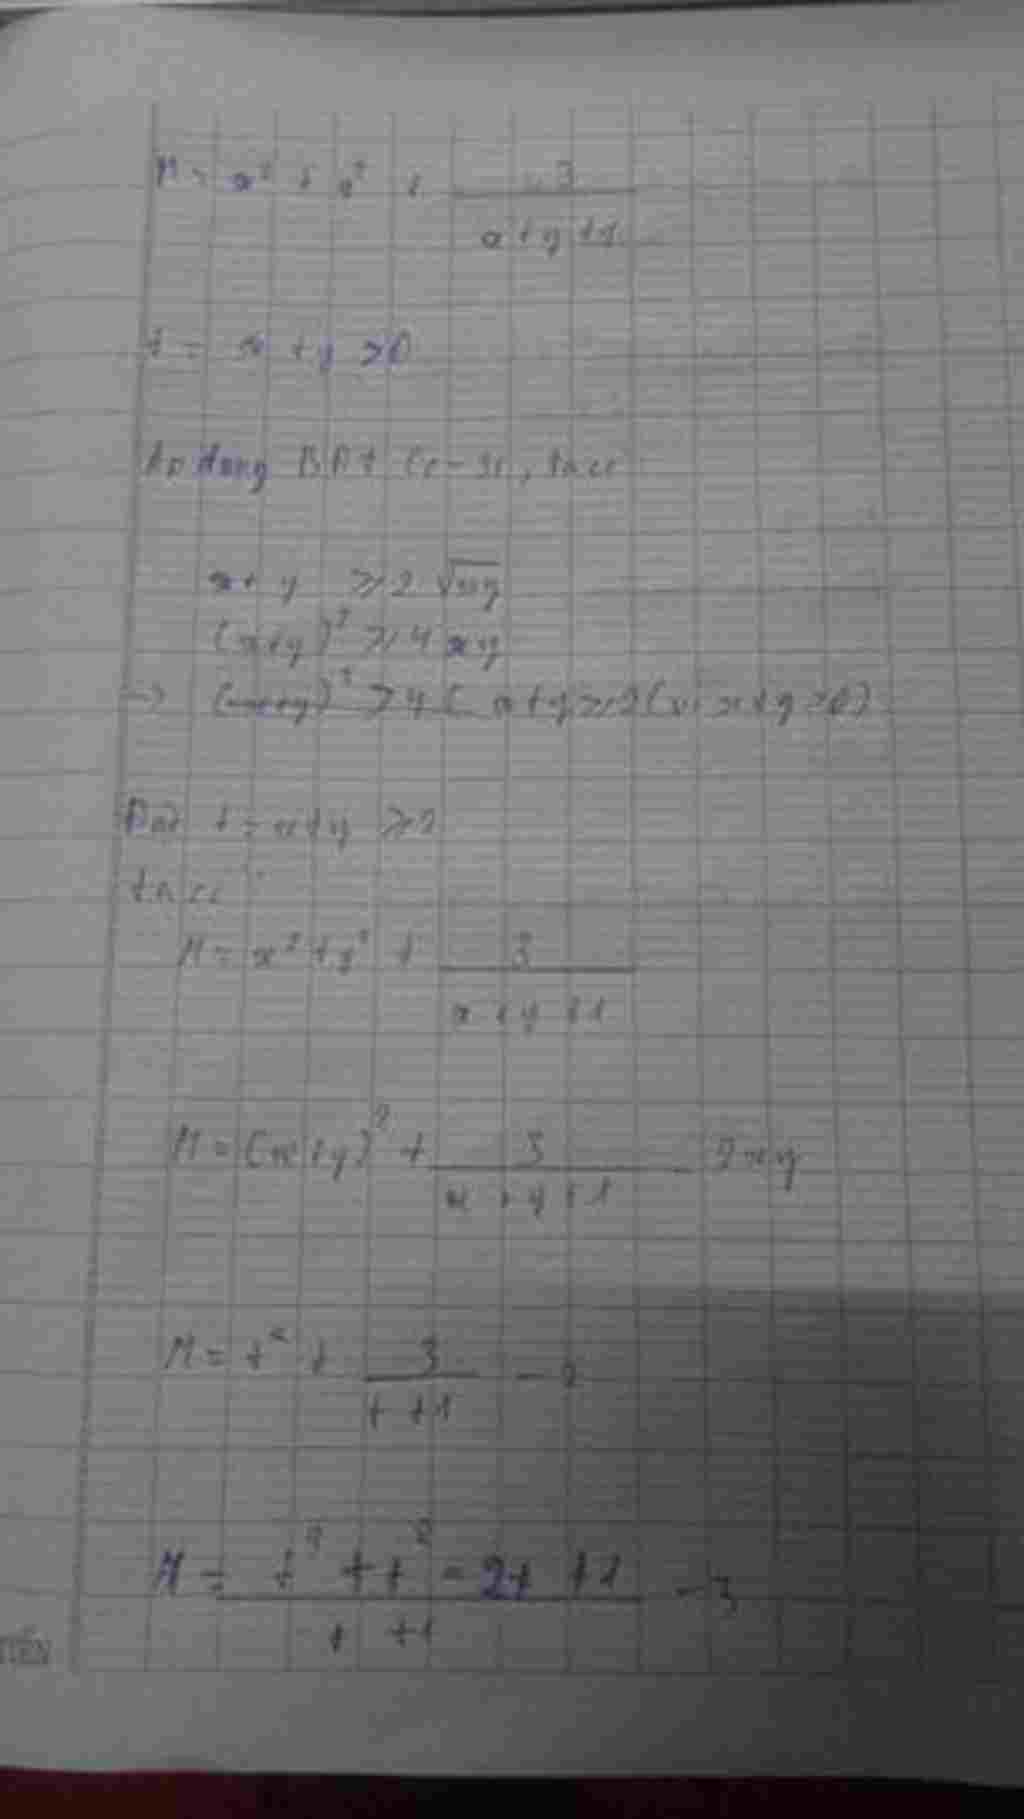 M = x² + y² + 3/(x+y+1)
t = x + y > 0
Áp dụng BĐT Cô-si, ta có
x + y ≥ 2 √xy
(x+y)² ≥ 4 xy
→ (x+y)² ≥ 4 ( x+y ≥ 2 (vì x+y > 0)
Đặt t = x+y ≥ 2
ta có
M = x² + y² + 3/(x+y+1)
M = (x+y)² + 3/(x+y+1) - 2xy
M = t² + 3/(t+1) - 2
M = (t³ + t² - 2t + 1)/(t+1) - 3